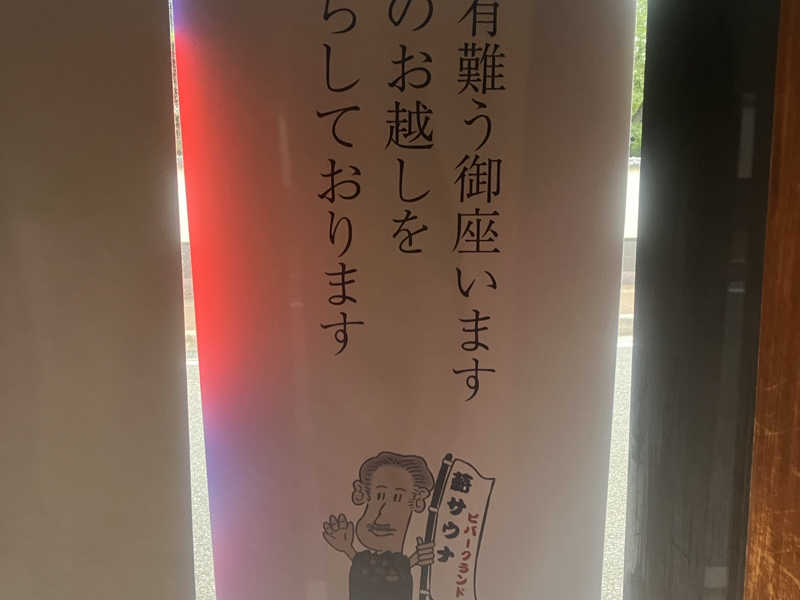 有難う御座います
のお越しを
らしております
サウナ
ビバークランド